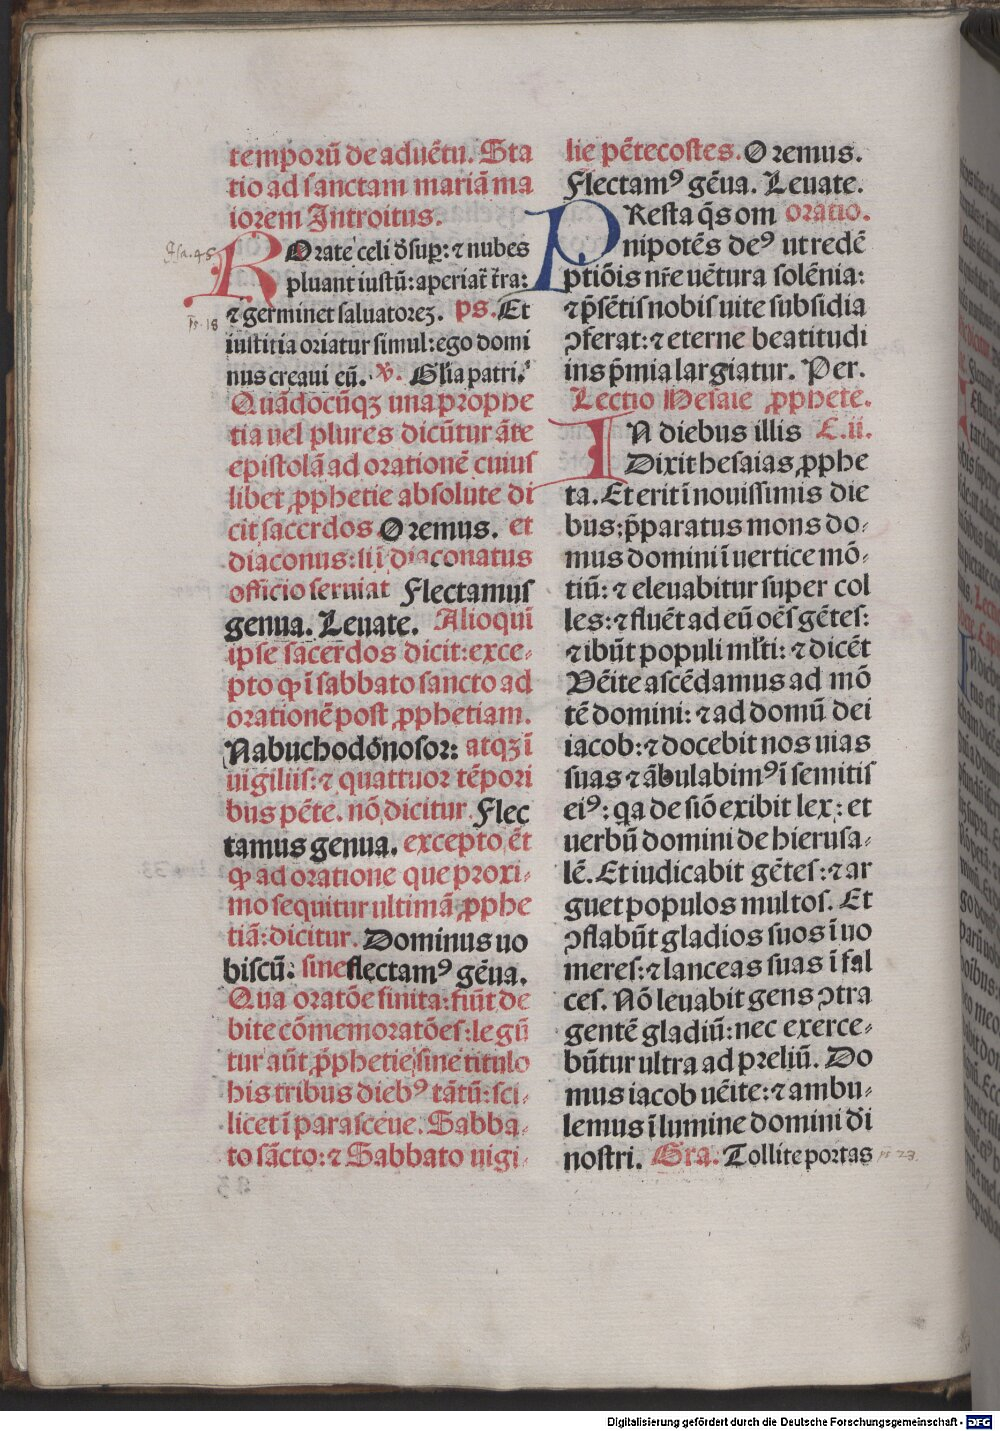 temporū de aduētu. Sta
tio ad sanctam mariā ma
iorem Introitus.
ROrate celi d̄sup̲: ⁊ nubes
pluant iustū: aperiat̄ t̄ra:
⁊ germinet saluatoreꝫ. ps. Et
iustitia oriatur simul: ego domi
nus creaui eū. v. Gl̄ia patri.
Quādocūqꝫ una prophe
tia uel plures dicūtur āte
epistolā ad orationē cuius
libet ꝓphetie absolute di
cit sacerdos Oremus. et
diaconus: si ī diaconatus
officio seruiat Flectamus
genua. Leuate. Alioqui
ipse sacerdos dicit: exce-
pto ꝙ ī sabbato sancto ad
orationē post ꝓphetiam.
Nabuchodonosor: atqꝫ ī
uigiliis: ⁊ quattuor tēpori
bus pēte. nō dicitur Flec
tamus genua. excepto ēt
ꝙ ad oratione que proxi-
mo sequitur ultimā ꝓphe
tiā: dicitur. Dominus uo
biscū: sine flectamꝰ gēua.
Qua oratōe finita: fiūt de
bite cōmemoratōes: legū
tur aūt ꝓphetie sine titulo
his tribus diebꝰ tātū: sci-
licet ī parasceue. Sabba-
to sācto: ⁊ Sabbato uigi-
lie pētecostes. Oremus.
Flectamꝰ gēua. Leuate.
PResta q̄s om oratio.
nipotēs deꝰ ut redē
ptiōis nr̄e uētura solēnia:
⁊ p̄sētis nobis uite subsidia
ꝯferat: ⁊ eterne beatitudi
ins p̄mia largiatur. Per.
Lectio Hesaie ꝓphete.
IN diebus illis C. ii.
Dixit hesaias ꝓphe
ta. Et erit ī nouissimis die
bus: p̄paratus mons do-
mus domini ī uertice mō-
tiū: ⁊ eleuabitur super col
les: ⁊ fluēt ad eū oēs gētes:
⁊ ibūt populi ml̄ti: ⁊ dicēt
Uēite ascēdamus ad mō
tē domini: ⁊ ad domū dei
iacob: ⁊ docebit nos uias
suas ⁊ ābulabimꝰ ī semitis
eiꝰ: qa de siō exibit lex: et
uerbū domini de hierusa-
lē. Et iudicabit gētes: ⁊ ar
guet populos multos. Et
ꝯflabūt gladios suos ī uo
meres: ⁊ lanceas suas ī fal
ces. Nō leuabit gens ꝯtra
gentē gladiū: nec exerce-
būtur ultra ad preliū. Do
mus iacob uēite: ⁊ ambu-
lemus ī lumine domini d̄i
nostri. Gra. Tollite portas
Isa. 45
ps. 18
ps 23.
Digitalisierung gefördert durch die Deutsche Forschungsgemeinschaft - DFG